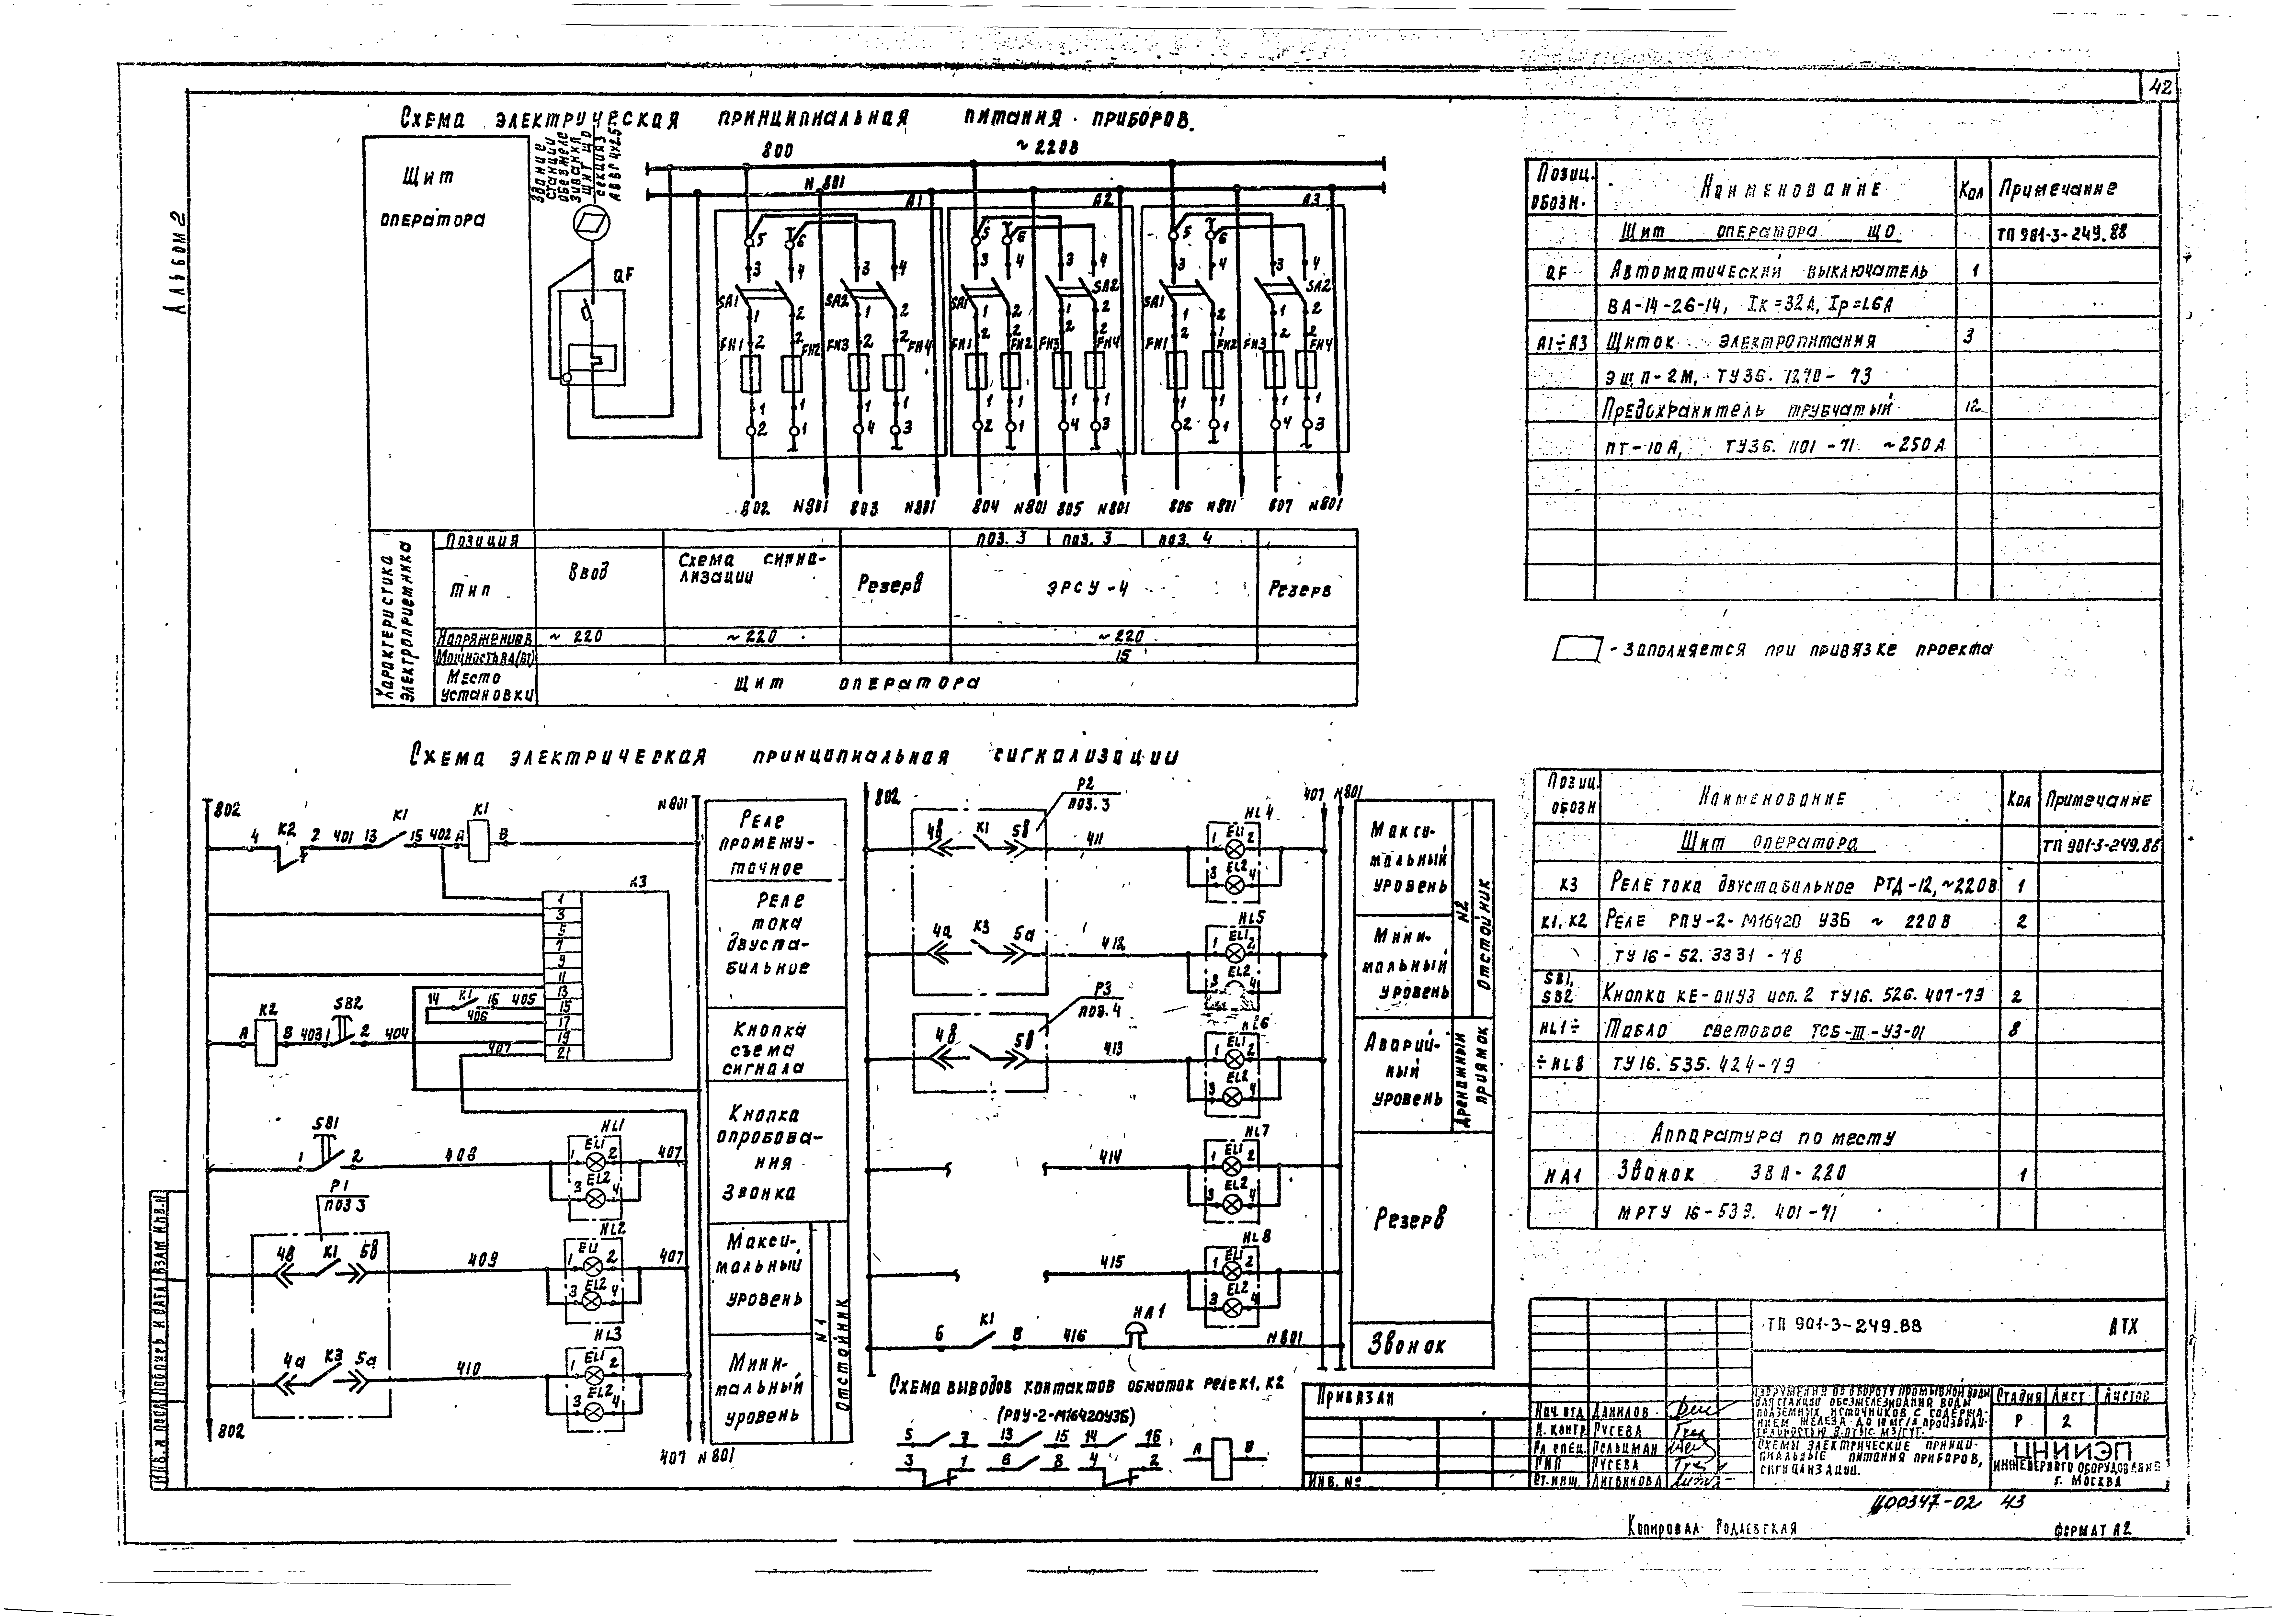 42
Альбом 2
Схема электрическая принципиальная питания приборов.
Щит
оператора
Здание
станции
обезжеле
зивания
щит ЩО
секция 3
АВВГ 4х2.5
QF
800
~220В
N 801
А1
А2
А3
5 6 5 6 5 6
3 4 3 4 3 4 3 4 3 4 3 4
SA1 SA2 SA1 SA2 SA1 SA2
1 2 1 2 1 2 1 2 1 2 1 2
FH1 FH2 FH3 FH4 FH1 FH2 FH3 FH4 FH1 FH2 FH3 FH4
2 1 4 3 2 1 4 3 2 1 4 3
802 N801 803 N801 804 N801 805 N801 806 N801 807 N801
Характеристика
электроприемника
Позиция
поз. 3 поз. 3 поз. 4
Тип
Ввод
Схема сигна-
лизации
Резерв
ЭРСУ-4
Резерв
Напряжение В ~220 ~220 ~220
Мощность ВА(Вт) 15
Место
установки
Щит оператора
Позиц.
обозн.
Наименование
Кол
Примечание
Щит оператора ЩО
ТП 901-3-249.88
QF Автоматический выключатель 1
ВА-14-26-14, Iк=32А, Iр=1.6А
А1÷А3 Щиток электропитания 3
ЭЩП-2М, ТУ36. 1270-73
Предохранитель трубчатый 12
ПТ-10А, ТУ36. 1101-71 ~250А
- Заполняется при привязке проекта
Схема электрическая принципиальная сигнализации
802
N801
4 К2 2 401 13 К1 15 402 А К1 В
К3
1
3
5
7
9
11
13
15
17
19
21
14 К1 16 405
406
407
А К2 В 403 1 SB2 2 404
SB1
1 2 408
HL1
1 EL1 2 407
3 EL2 4
Р1
поз 3
4В К1 5В 409
HL2
1 EL1 2 407
3 EL2 4
4а К3 5а 410
HL3
1 EL1 2
3 EL2 4
802
407 N801
Реле
промежу-
точное
Реле
тока
двуста-
бильние
Кнопка
съема
сигнала
Кнопка
опробова-
ния
Звонка
Макси-
мальный
уровень
Мини-
мальный
уровень
N1
Отстойник
802
407 N801
Р2
поз. 3
4В К1 5В 411
HL4
1 EL1 2
3 EL2 4
4а К3 5а 412
HL5
1 EL1 2
3 EL2 4
Р3
поз. 4
4В 5В 413
HL6
1 EL1 2
3 EL2 4
414
HL7
1 EL1 2
3 EL2 4
415
HL8
1 EL1 2
3 EL2 4
6 К1 8 416 НА1 N801
Макси-
мальный
уровень
Мини-
мальный
уровень
N2
Отстойник
Аварий-
ный
уровень
Дренажный
приямок
Резерв
Звонок
Схема выводов контактов обмоток реле К1, К2
(РПУ-2-М16420У3Б)
5 7 13 15 14 16
3 1 6 8 4 2
А В
Позиц.
обозн
Наименование
Кол
Примечание
Щит оператора
ТП 901-3-249.88
К3 Реле тока двустабильное РТД-12, ~220В 1
К1, К2 Реле РПУ-2-М16420 У3Б ~ 220В 2
ТУ 16-52. 3331-78
SB1,
SB2 Кнопка КЕ-011У3 исп. 2 ТУ16. 526. 407-79 2
HL1÷ Табло световое ТСБ-III-У3-01 8
÷HL8 ТУ16. 535. 424-79
Аппаратура по месту
НА1 Звонок ЗВП-220 1
МРТУ 16-539. 401-71
ТП 901-3-249.88 АТХ
Привязан
Инв. №
Нач. отд. Данилов
Н. контр. Гусева
Гл. спец. Гольцман
ГИП Гусева
Ст. инж. Литвинова
Сооружения по обороту промывной воды
для станции обезжелезивания воды
подземных источников с содержа-
нием железа до 10 мг/л производи-
тельностью
Схемы электрические принци-
пиальные питания приборов,
сигнализации.
Стадия Лист Листов
Р 2
ЦНИИЭП
инженерного оборудования
г. Москва
Инв. № подл. Подпись и дата Взам. инв. №
Ц00347-02 43
Копировал Родаевская
Формат А2